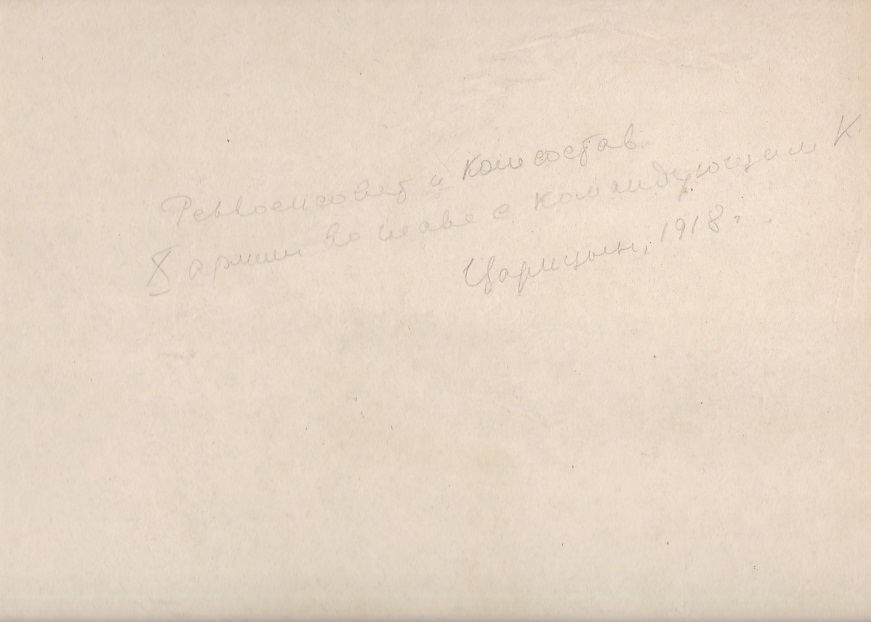 Реввоенсовет и комсостав
X армии во главе с командующим К.
Царицын, 1918 г.